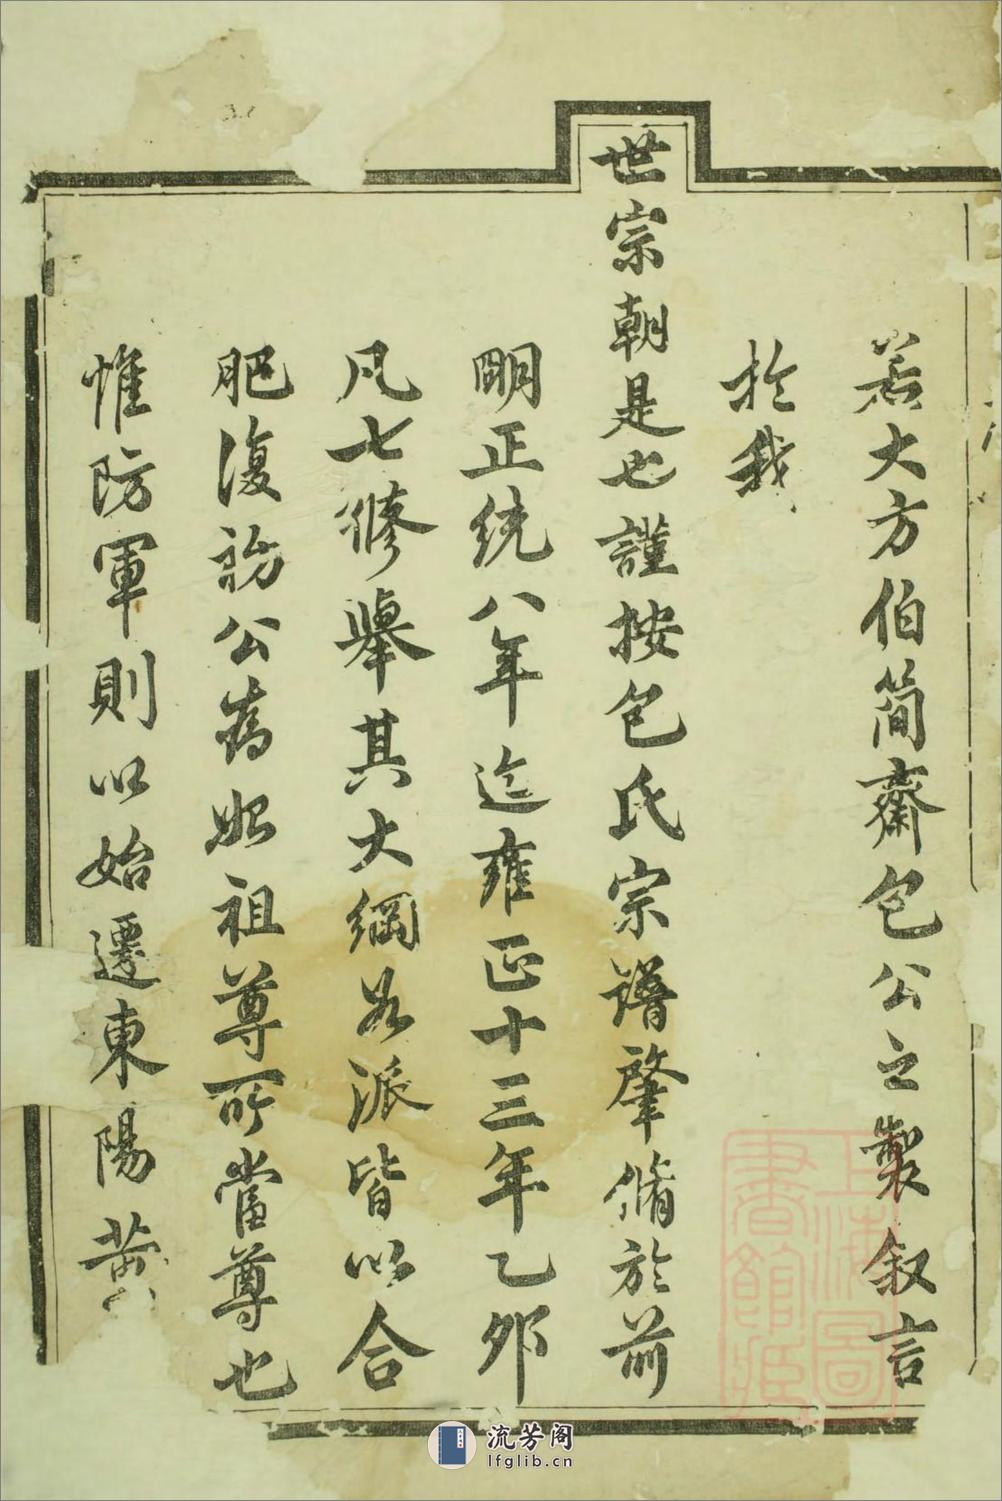 若大方伯简齋包公之製叙言
於我
世宗朝是也謹按包氏宗譜肇脩於前
明正統八年迄雍正十三年乙夘
凡七修舉其大綱各派皆以合
肥復初公為始祖尊所當尊也
惟防軍則以始遷東陽黄
上海圖書館藏
流芳阁
lfglib.cn